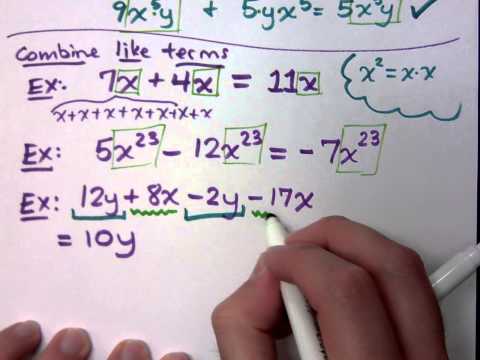 9x⁵y + 5·yx⁵ = 5x⁵y ✓
Combine like terms
Ex: 7x + 4x = 11x
x² = x·x
x+x+x+x+x+x+x+x
Ex: 5x²³ − 12x²³ = −7x²³
Ex: 12y + 8x − 2y − 17x
= 10y